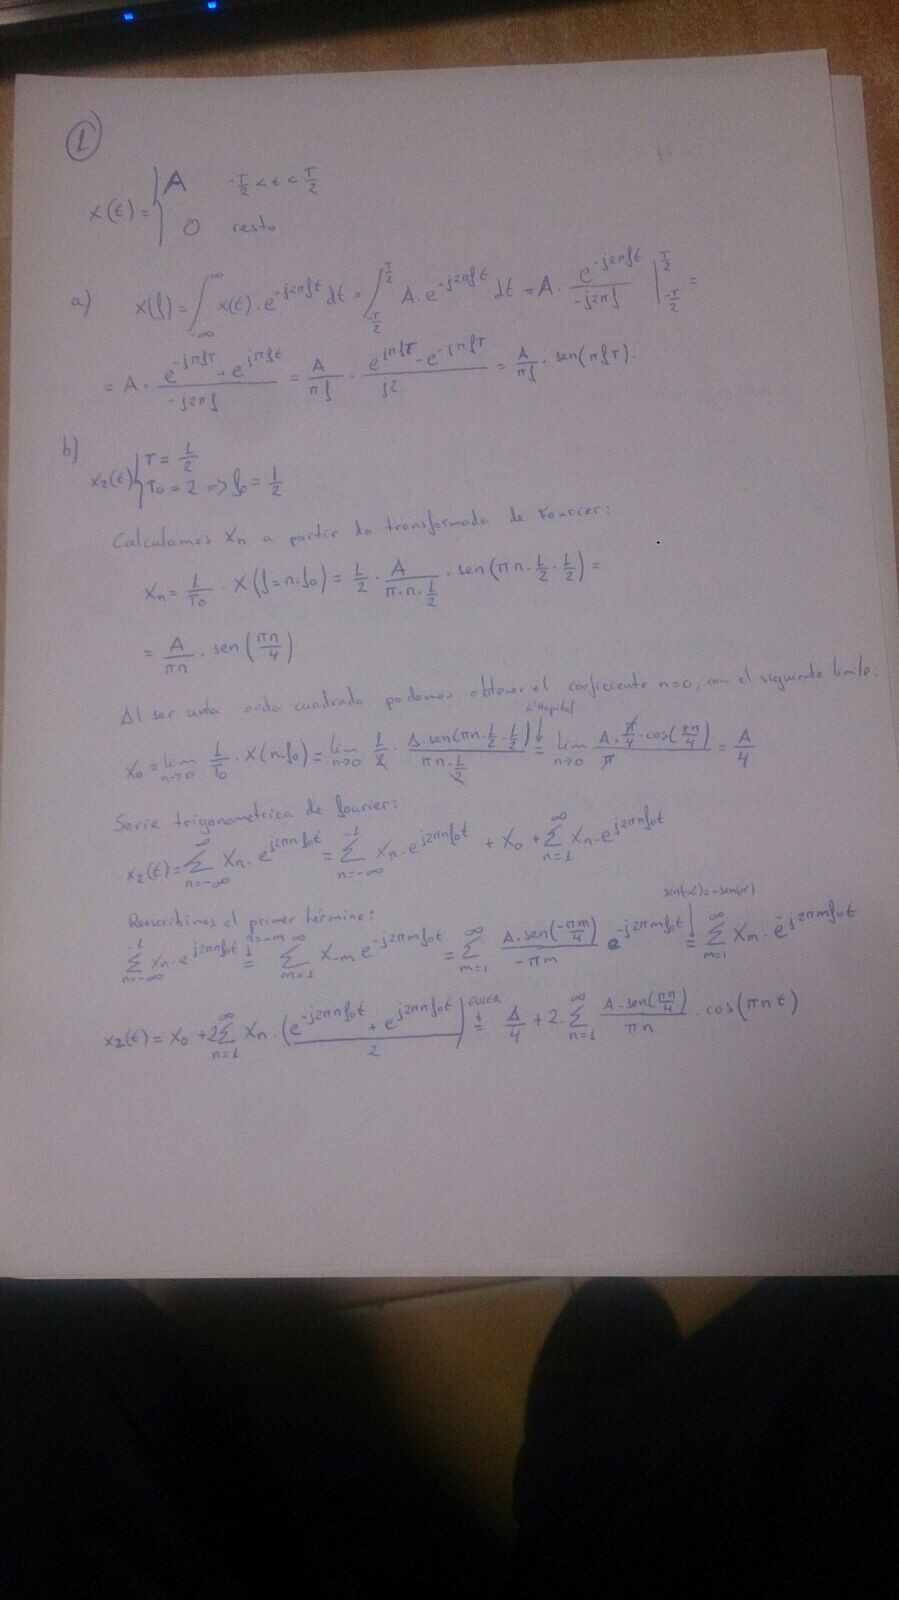 1
x(t) = { A   -T/2 < t < T/2
0   resto
a) X(f) = ∫_{-∞}^{∞} x(t)·e^{-j2πft} dt = ∫_{-T/2}^{T/2} A·e^{-j2πft} dt = A· e^{-j2πft}/(-j2πf) |_{-T/2}^{T/2} =
= A· (e^{-jπfT} - e^{jπft})/(-j2πf) = A/(πf) · (e^{jπfT} - e^{-jπfT})/(j2) = A/(πf) · sen(πfT).
b) x2(t) { T = 1/2
T0 = 2 => f0 = 1/2
Calculamos Xn a partir da transformada de Fourier:
Xn = 1/T0 · X(f=n·f0) = 1/2 · A/(π·n·1/2) · sen(πn·1/2·1/2) =
= A/(πn) · sen(πn/4)
Al ser unha onda cuadrada podemos obtener el coeficiente n=0, con el siguiente límite:
L'Hopital
X0 = lim_{n→0} 1/T0 · X(nf0) = lim_{n→0} 1/2 · A·sen(πn·1/2·1/2)/(πn·1/2) = lim_{n→0} A·π/4·cos(πn/4)/π = A/4
Serie trigonometrica de fourier:
x2(t) = ∑_{n=-∞}^{∞} Xn·e^{j2πnf0t} = ∑_{n=-∞}^{-1} Xn·e^{j2πnf0t} + X0 + ∑_{n=1}^{∞} Xn·e^{j2πnf0t}
Reescribimos el primer término:
sen(-α)=-sen(α)
∑_{n=-∞}^{-1} Xn·e^{j2πnf0t} n=-m = ∑_{m=1}^{∞} X-m e^{-j2πmf0t} = ∑_{m=1}^{∞} A·sen(-πm/4)/(-πm) e^{-j2πmf0t} = ∑_{m=1}^{∞} Xm·e^{-j2πmf0t}
x2(t) = X0 + 2∑_{n=1}^{∞} Xn·(e^{-j2πnf0t} + e^{j2πnf0t})/2 EULER = A/4 + 2·∑_{n=1}^{∞} A·sen(πn/4)/(πn) · cos(πnt)